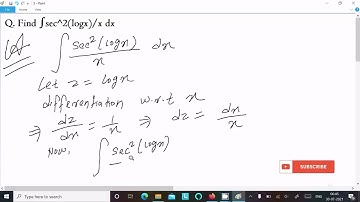 2 - Paint
Q. Find ∫sec^2(logx)/x dx
∫ sec²(logx)/x dx
Let z = logx
differentiation w.r.t x
⇒ dz/dx = 1/x ⇒ dz = dx/x
Now, ∫ sec²(logx)
SUBSCRIBE
30-07-2021